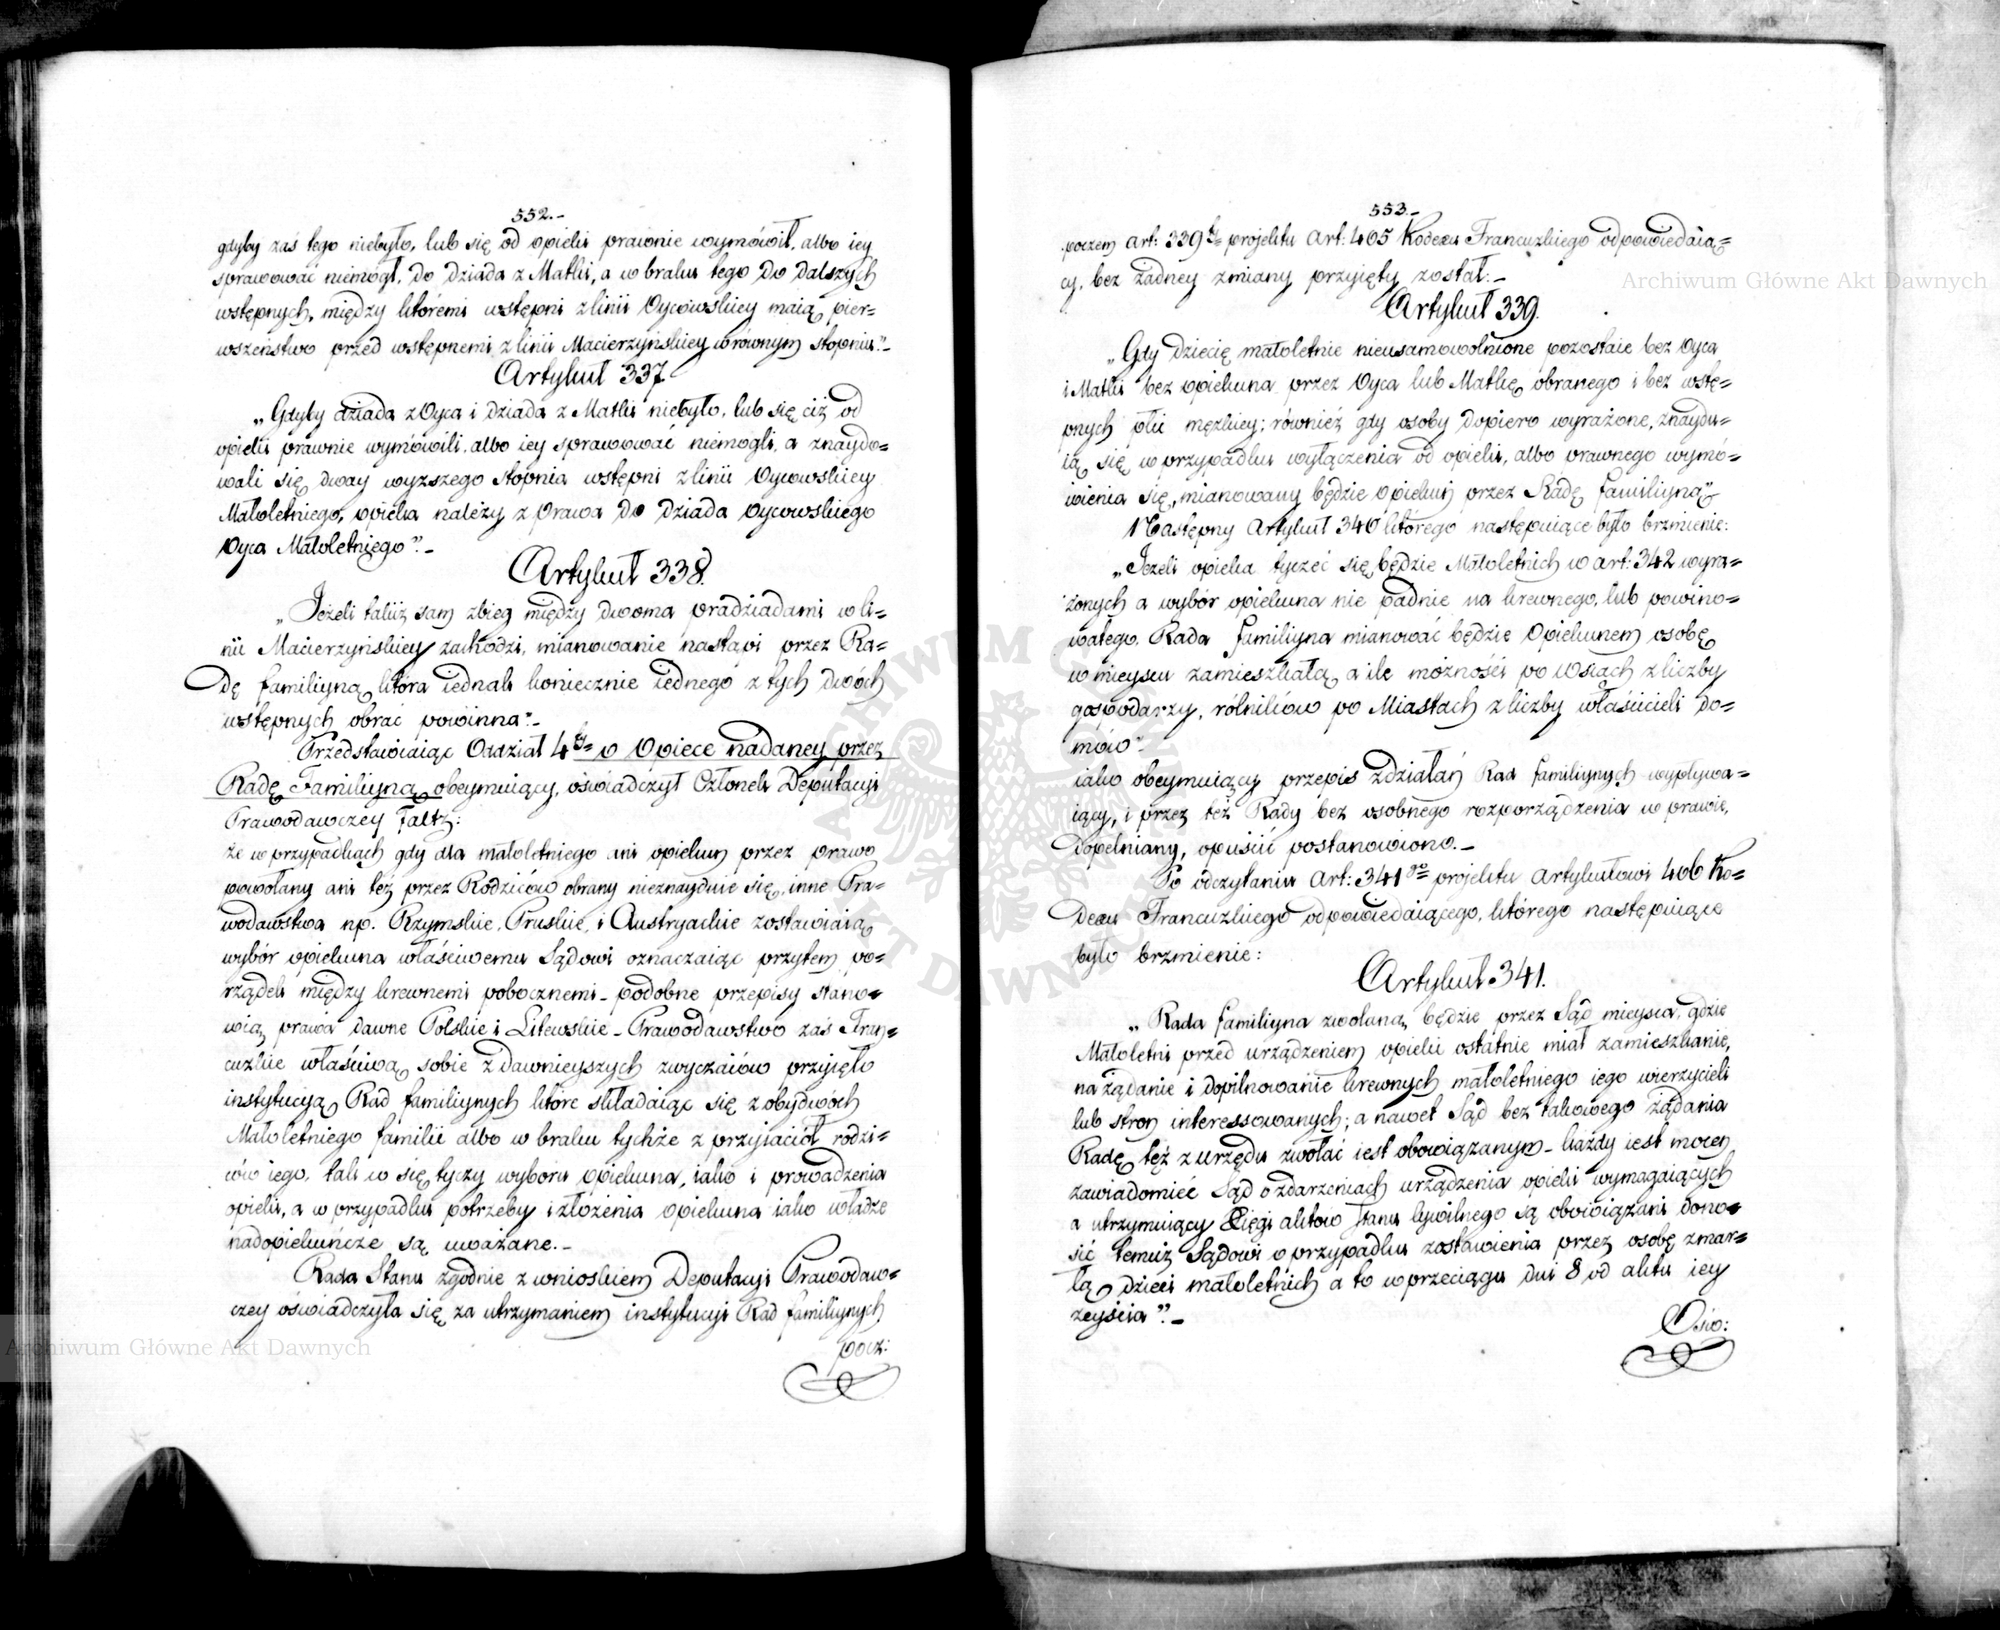 552.-
gdyby zaś tego niebyło, lub się od opieki prawnie wymówił, albo iey
sprawować niemógł, do dziada z Matki, a w braku tego do dalszych
wstępnych, między któremi wstępni z linii Oycowskiey maią pier=
wszeństwo przed wstępnemi z linii Macierzyńskiey w równym stopniu."-
Artykuł 337.
„Gdyby dziada z Oyca i dziada z Matki niebyło, lub się ciż od
opieki prawnie wymówili, albo iey sprawować niemogli, a znaydo=
wali się dway wyższego stopnia wstępni z linii Oycowskiey
Małoletniego, opieka należy z prawa do dziada Oycowskiego
Oyca Małoletniego".-
Artykuł 338.
„Jeżeli takiż sam zbieg między dwoma pradziadami w li=
nii Macierzyńskiey zachodzi, mianowanie nastąpi przez Ra=
dę familiyną, która iednak koniecznie iednego z tych dwóch
wstępnych obrać powinna".-
Przedstawiaiąc Oddział 4ty o Opiece nadaney przez
Radę Familiyną obeymuiący, oświadczył Członek Deputacyi
Prawodawczey Faltz:
że w przypadkach gdy dla małoletniego ani opiekun przez prawo
powołany ani też przez Rodziców obrany nieznayduie się, inne Pra=
wodawstwa np. Rzymskie, Pruskie, i Austryackie zostawiaią
wybór opiekuna właściwemu Sądowi oznaczaiąc przytem po=
rządek między krewnemi pobocznemi - podobne przepisy stano=
wią prawa dawne Polskie i Litewskie - Prawodawstwo zaś Fran=
cuzkie właściwą sobie z dawnieyszych zwyczaiów przyięło
instytucyą Rad familiynych które składaiąc się z obydwóch
Małoletniego familii albo w braku tychże z przyiaciół rodzi=
ców iego, tak co się tyczy wyboru opiekuna, iako i prowadzenia
opieki, a w przypadku potrzeby i złożenia opiekuna iako władze
nadopiekuńcze są uważane.-
Rada Stanu zgodnie z wnioskiem Deputacyi Prawodaw=
czey oświadczyła się za utrzymaniem instytucyi Rad familiynych
pocz:
553.-
poczem art: 339ty projektu art: 405 Kodexu Francuzkiego odpowiedaią=
cy, bez żadney zmiany przyięty został.-
Artykuł 339.
„Gdy dziecię małoletnie nieusamowolnione pozostaie bez Oyca
i Matki bez opiekuna przez Oyca lub Matkę obranego i bez wstę=
pnych płci męzkiey; również gdy osoby dopiero wyrażone, znaydu=
ią się w przypadku wyłączenia od opieki, albo prawnego wymó=
wienia się, mianowany będzie opiekun przez Radę familiyną"-
Następny Artykuł 340 którego następuiące było brzmienie:
„Jeżeli opieka tyczeć się będzie Małoletnich w art: 342 wyra=
żonych a wybór opiekuna nie padnie na krewnego, lub powino=
watego, Rada familiyna mianować będzie Opiekunem osobę
w mieyscu zamieszkałą, a ile możności po Wsiach z liczby
gospodarzy, rólników po Miastach z liczby właścicieli do=
mów"-
iako obeymuiący przepis z działań Rad familiynych wypływa=
iący, i przez też Rady bez osobnego rozporządzenia w prawie,
dopełniany, opuścić postanowiono.-
Po odczytaniu art: 341go projektu artykułowi 406 Ko=
dexu Francuzkiego odpowiedaiącego, którego następuiące
było brzmienie:
Artykuł 341.
„Rada familiyna zwołana będzie przez Sąd mieysca, gdzie
Małoletni przed urządzeniem opieki ostatnie miał zamieszkanie,
na żądanie i dopilnowanie krewnych małoletniego iego wierzycieli
lub stron interessowanych; a nawet Sąd bez takowego żądania
Radę też z urzędu zwołać iest obowiązanym - każdy iest mocen
zawiadomić Sąd o zdarzeniach urządzenia opieki wymagaiących
a utrzymuiący Xięgi aktów stanu cywilnego są obowiązani dono=
sić temuż Sądowi o przypadku zostawienia przez osobę zmar=
łą dzieci małoletnich a to w przeciągu dni 8 od aktu iey
zeyścia".-
Ośw:
Archiwum Główne Akt Dawnych
Archiwum Główne Akt Dawnych